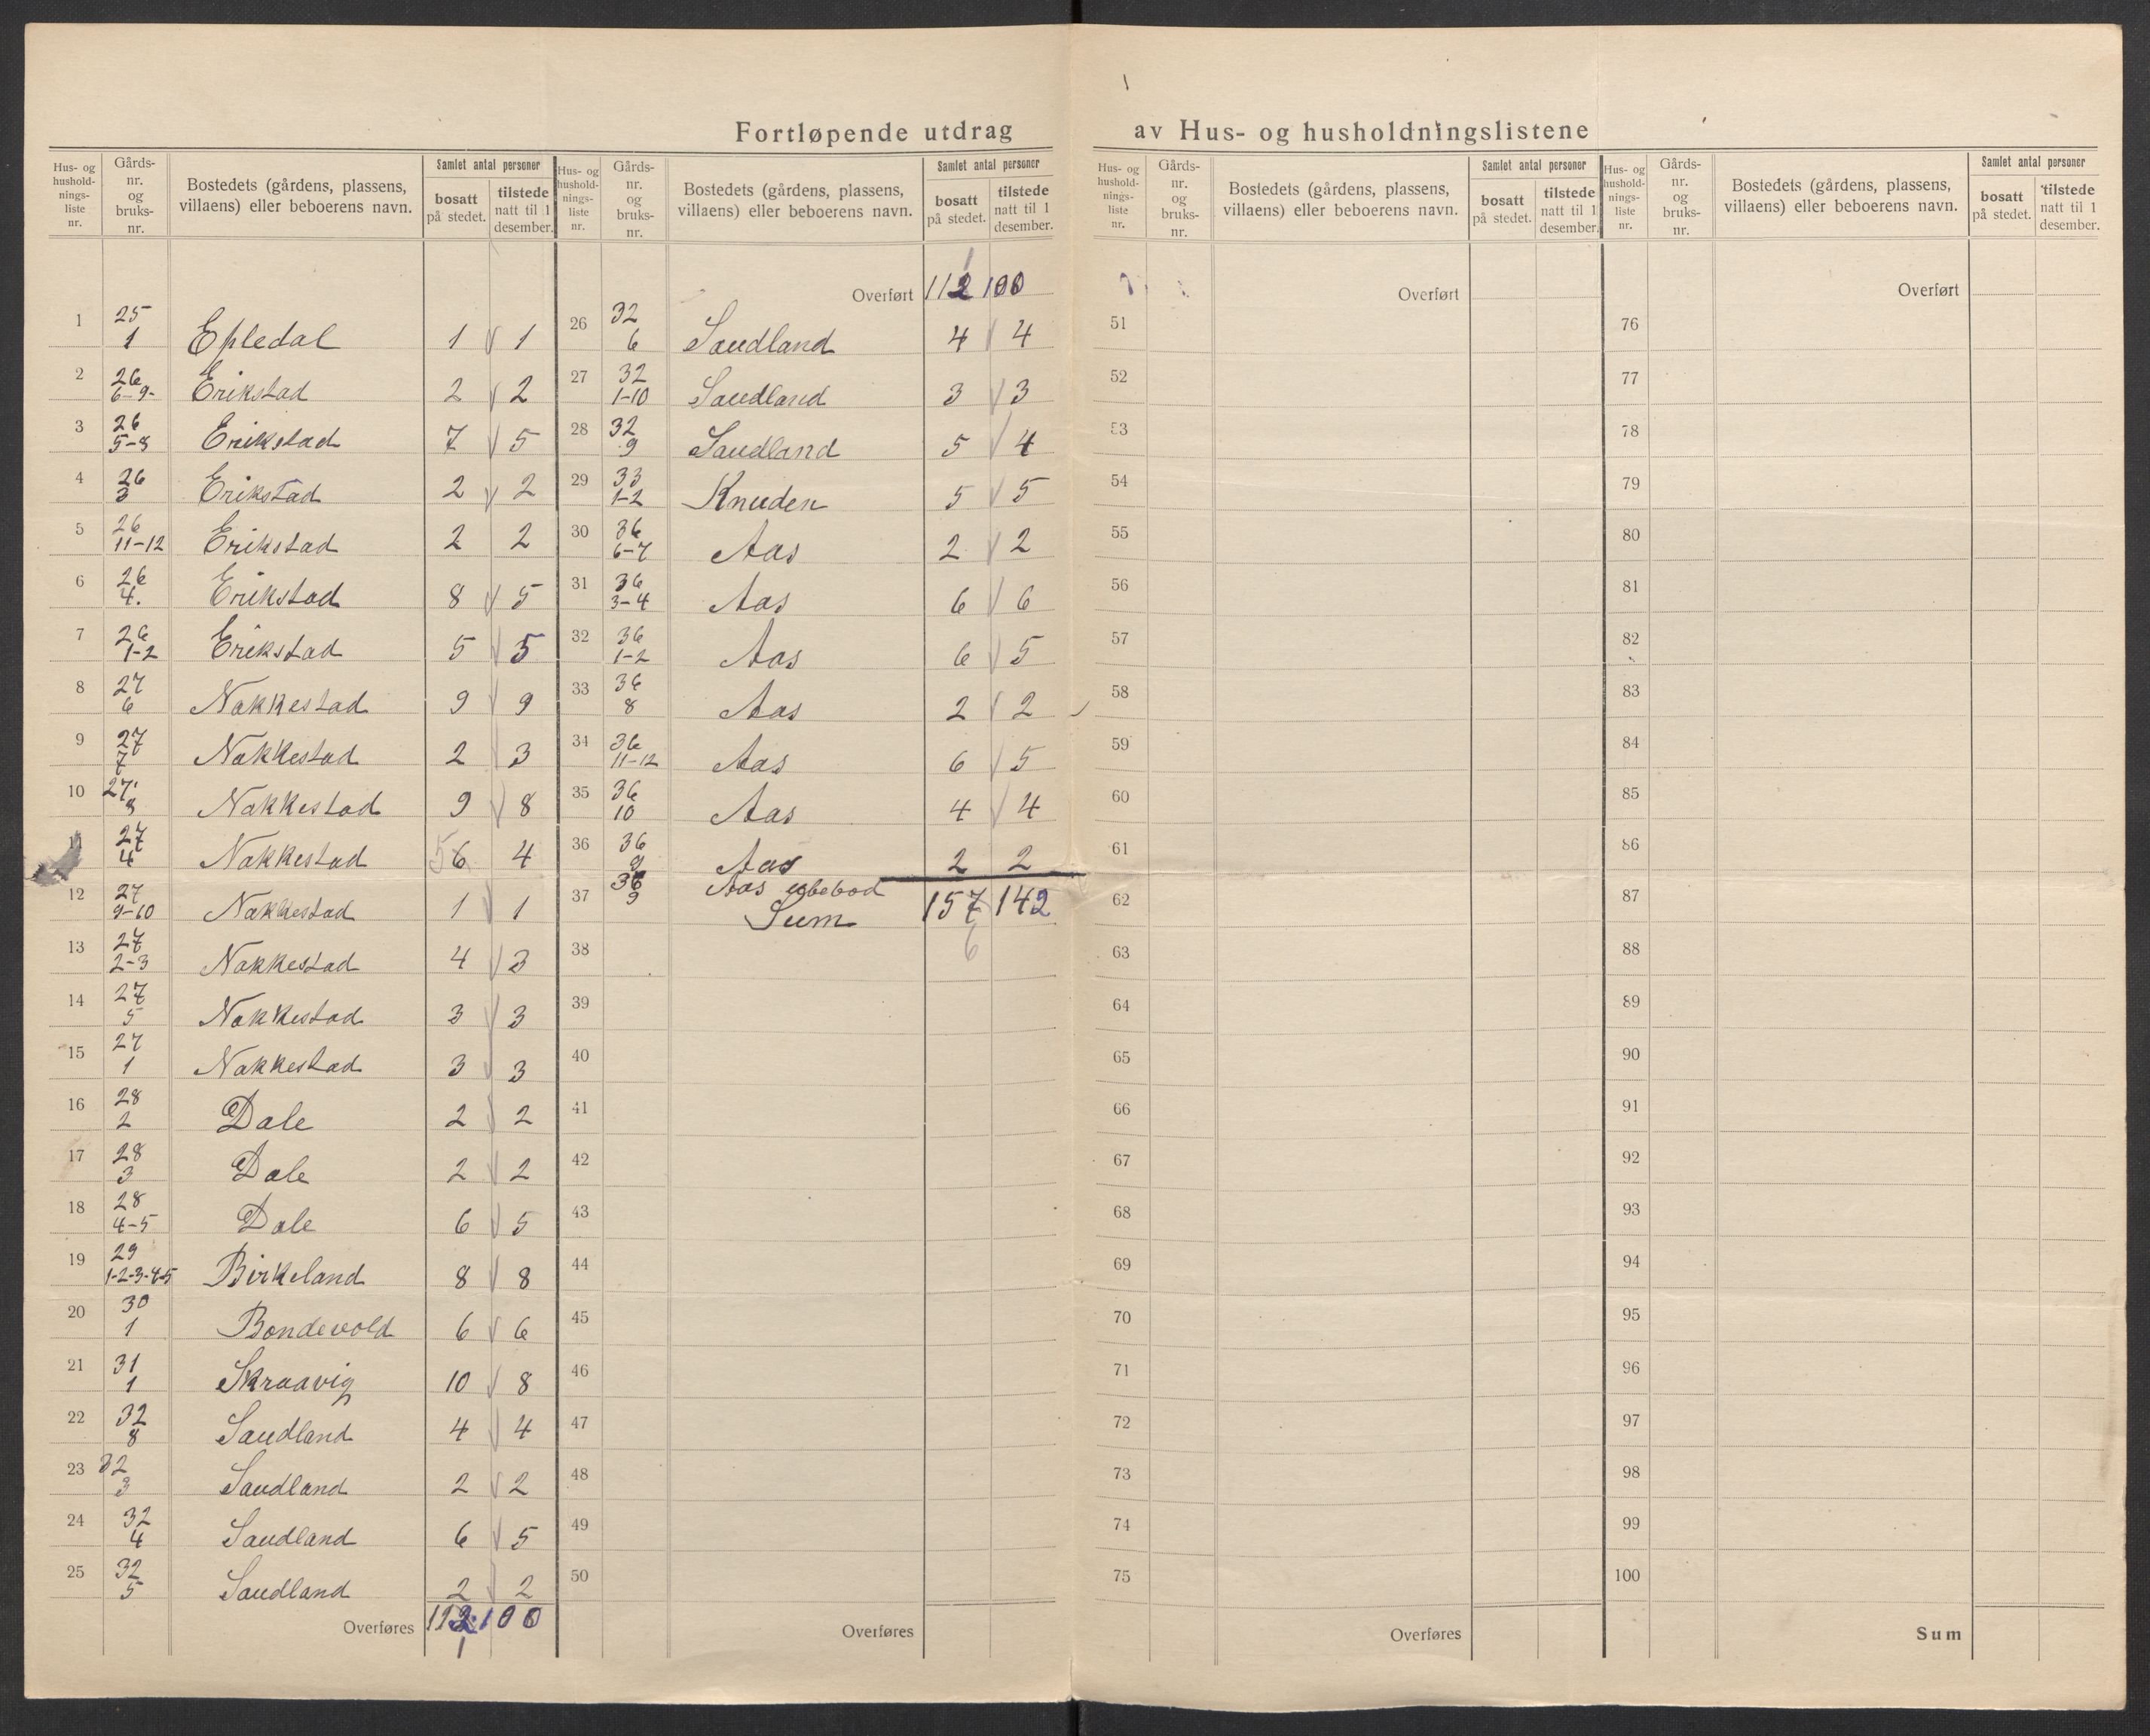 Fortløpende utdrag av Hus- og husholdningslistene
Hus- og hushold-nings-liste nr. | Gårds-nr. og bruks-nr. | Bostedets (gårdens, plassens, villaens) eller beboerens navn. | Samlet antal personer | bosatt på stedet. | tilstede natt til 1 desember.
1 | 25 / 1 | Epledal | 1 | 1
2 | 26 / 6-9- | Erikstad | 2 | 2
3 | 26 / 5-8 | Erikstad | 7 | 5
4 | 26 / 3 | Erikstad | 2 | 2
5 | 26 / 11-12 | Erikstad | 2 | 2
6 | 26 / 4. | Erikstad | 8 | 5
7 | 26 / 1-2 | Erikstad | 5 | 5
8 | 27 / 6 | Nakkestad | 9 | 9
9 | 27 / 7 | Nakkestad | 2 | 3
10 | 27 / 8 | Nakkestad | 9 | 8
11 | 27 / 4 | Nakkestad | 5 6 | 4
12 | 27 / 9-10 | Nakkestad | 1 | 1
13 | 27 / 2-3 | Nakkestad | 4 | 3
14 | 27 / 5 | Nakkestad | 3 | 3
15 | 27 / 1 | Nakkestad | 3 | 3
16 | 28 / 2 | Dale | 2 | 2
17 | 28 / 3 | Dale | 2 | 2
18 | 28 / 4-5 | Dale | 6 | 5
19 | 29 / 1-2-3-4-5 | Birkeland | 8 | 8
20 | 30 / 1 | Bondevold | 6 | 6
21 | 31 / 1 | Skraavig | 10 | 8
22 | 32 / 8 | Sandland | 4 | 4
23 | 32 / 3 | Sandland | 2 | 2
24 | 32 / 4 | Sandland | 6 | 5
25 | 32 / 5 | Sandland | 2 | 2
Overføres | 112 | 100
1
Hus- og hushold-nings-liste nr. | Gårds-nr. og bruks-nr. | Bostedets (gårdens, plassens, villaens) eller beboerens navn. | Samlet antal personer | bosatt på stedet. | tilstede natt til 1 desember.
1
Overført | 112 | 100
26 | 32 / 6 | Sandland | 4 | 4
27 | 32 / 1-10 | Sandland | 3 | 3
28 | 32 / 9 | Sandland | 5 | 4
29 | 33 / 1-2 | Knuden | 5 | 5
30 | 36 / 6-7 | Aas | 2 | 2
31 | 36 / 3-4 | Aas | 6 | 6
32 | 36 / 1-2 | Aas | 6 | 5
33 | 36 / 8 | Aas | 2 | 2
34 | 36 / 11-12 | Aas | 6 | 5
35 | 36 / 10 | Aas | 4 | 4
36 | 36 / 9 | Aas | 2 | 2
37 | 36 / 9 | Aas ubebod
Sum | 157 | 142
6
38
39
40
41
42
43
44
45
46
47
48
49
50
Overføres
Hus- og hushold-nings-liste nr. | Gårds-nr. og bruks-nr. | Bostedets (gårdens, plassens, villaens) eller beboerens navn. | Samlet antal personer | bosatt på stedet. | tilstede natt til 1 desember.
Overført
51
52
53
54
55
56
57
58
59
60
61
62
63
64
65
66
67
68
69
70
71
72
73
74
75
Overføres
Hus- og hushold-nings-liste nr. | Gårds-nr. og bruks-nr. | Bostedets (gårdens, plassens, villaens) eller beboerens navn. | Samlet antal personer | bosatt på stedet. | tilstede natt til 1 desember.
Overført
76
77
78
79
80
81
82
83
84
85
86
87
88
89
90
91
92
93
94
95
96
97
98
99
100
Sum